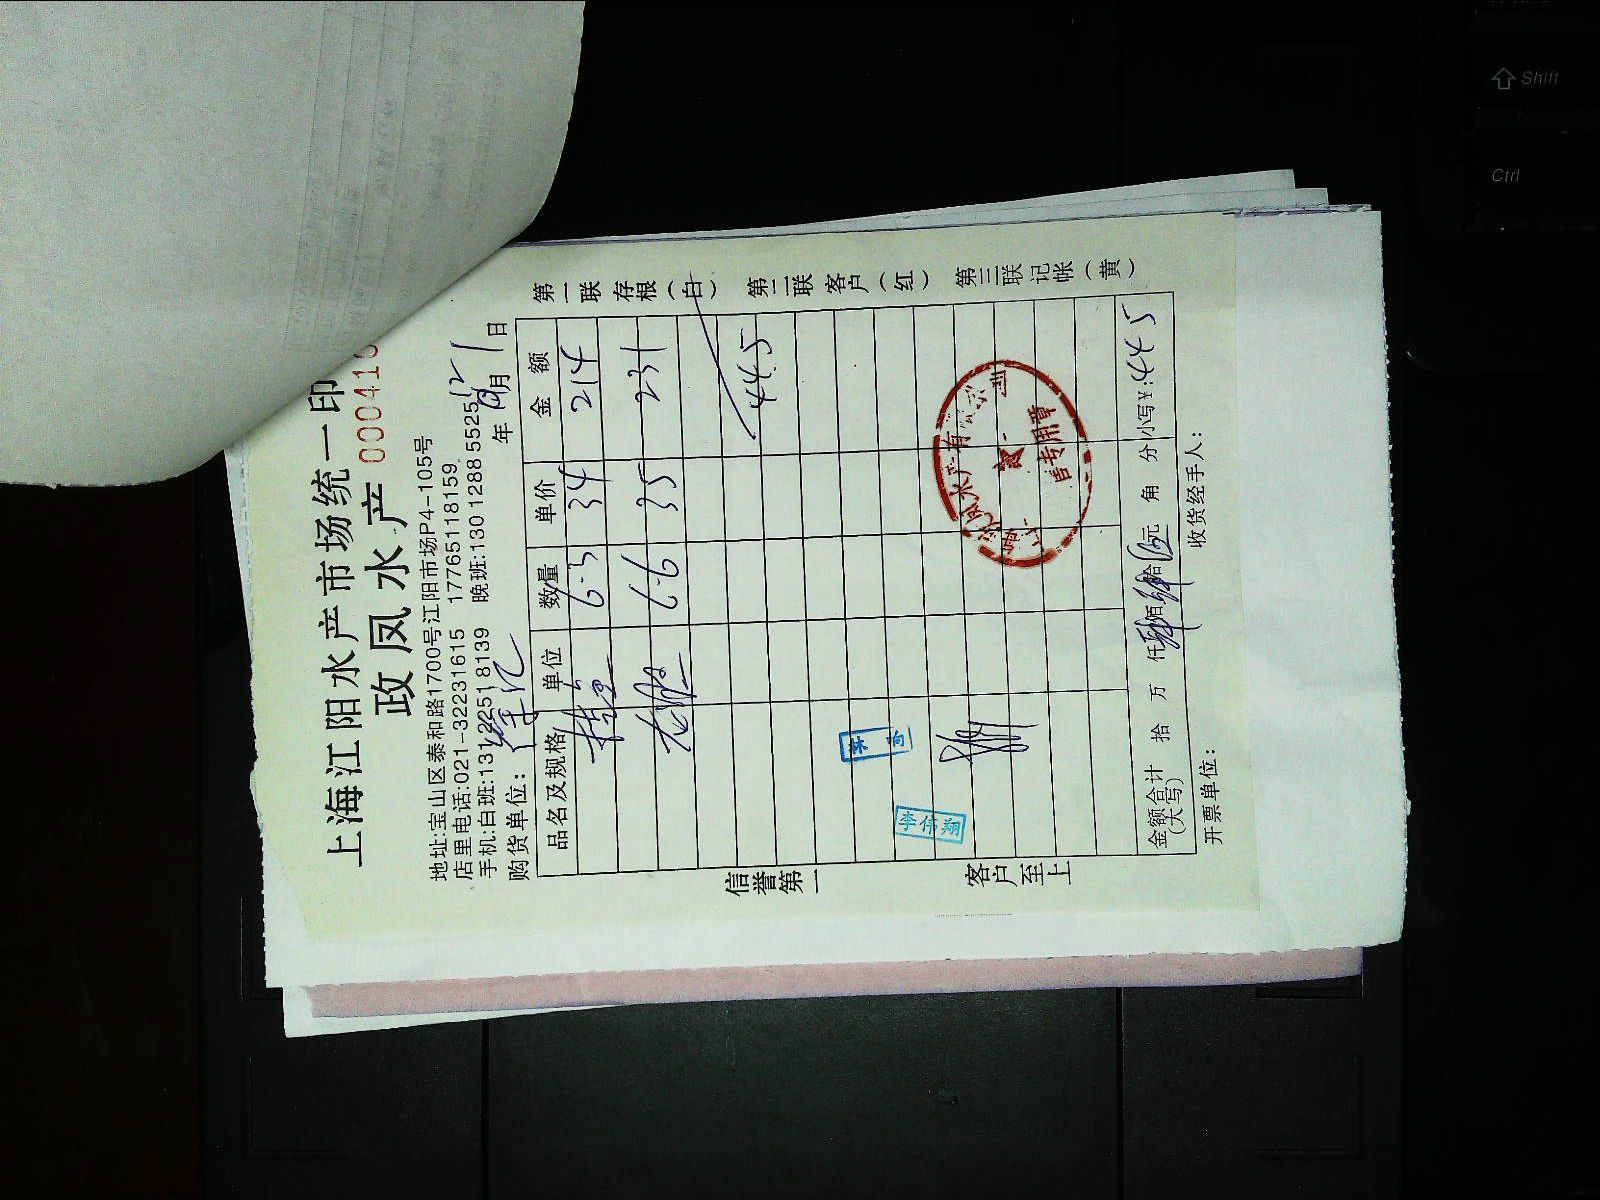 上海江阳水产市场统一印
政凤水产
00041
地址:宝山区泰和路1700号江阳市场P4-105号
店里电话:021-32231615 17765118159
手机:白班:131 2251 8139 晚班:130 1288 5525
购货单位: 年12月1日
品名及规格 单位 数量 单价 金额
6.3 34 214
龙胆 6.6 35 231
445
林
李伟翔
凤水产有
售专用章
金额合计(大写) 拾 万 仟肆佰肆拾伍元 角 分 小写¥:445
开票单位: 收货经手人:
信誉第一
客户至上
第一联存根(白) 第二联客户(红) 第三联记帐(黄)
Shift
Ctrl